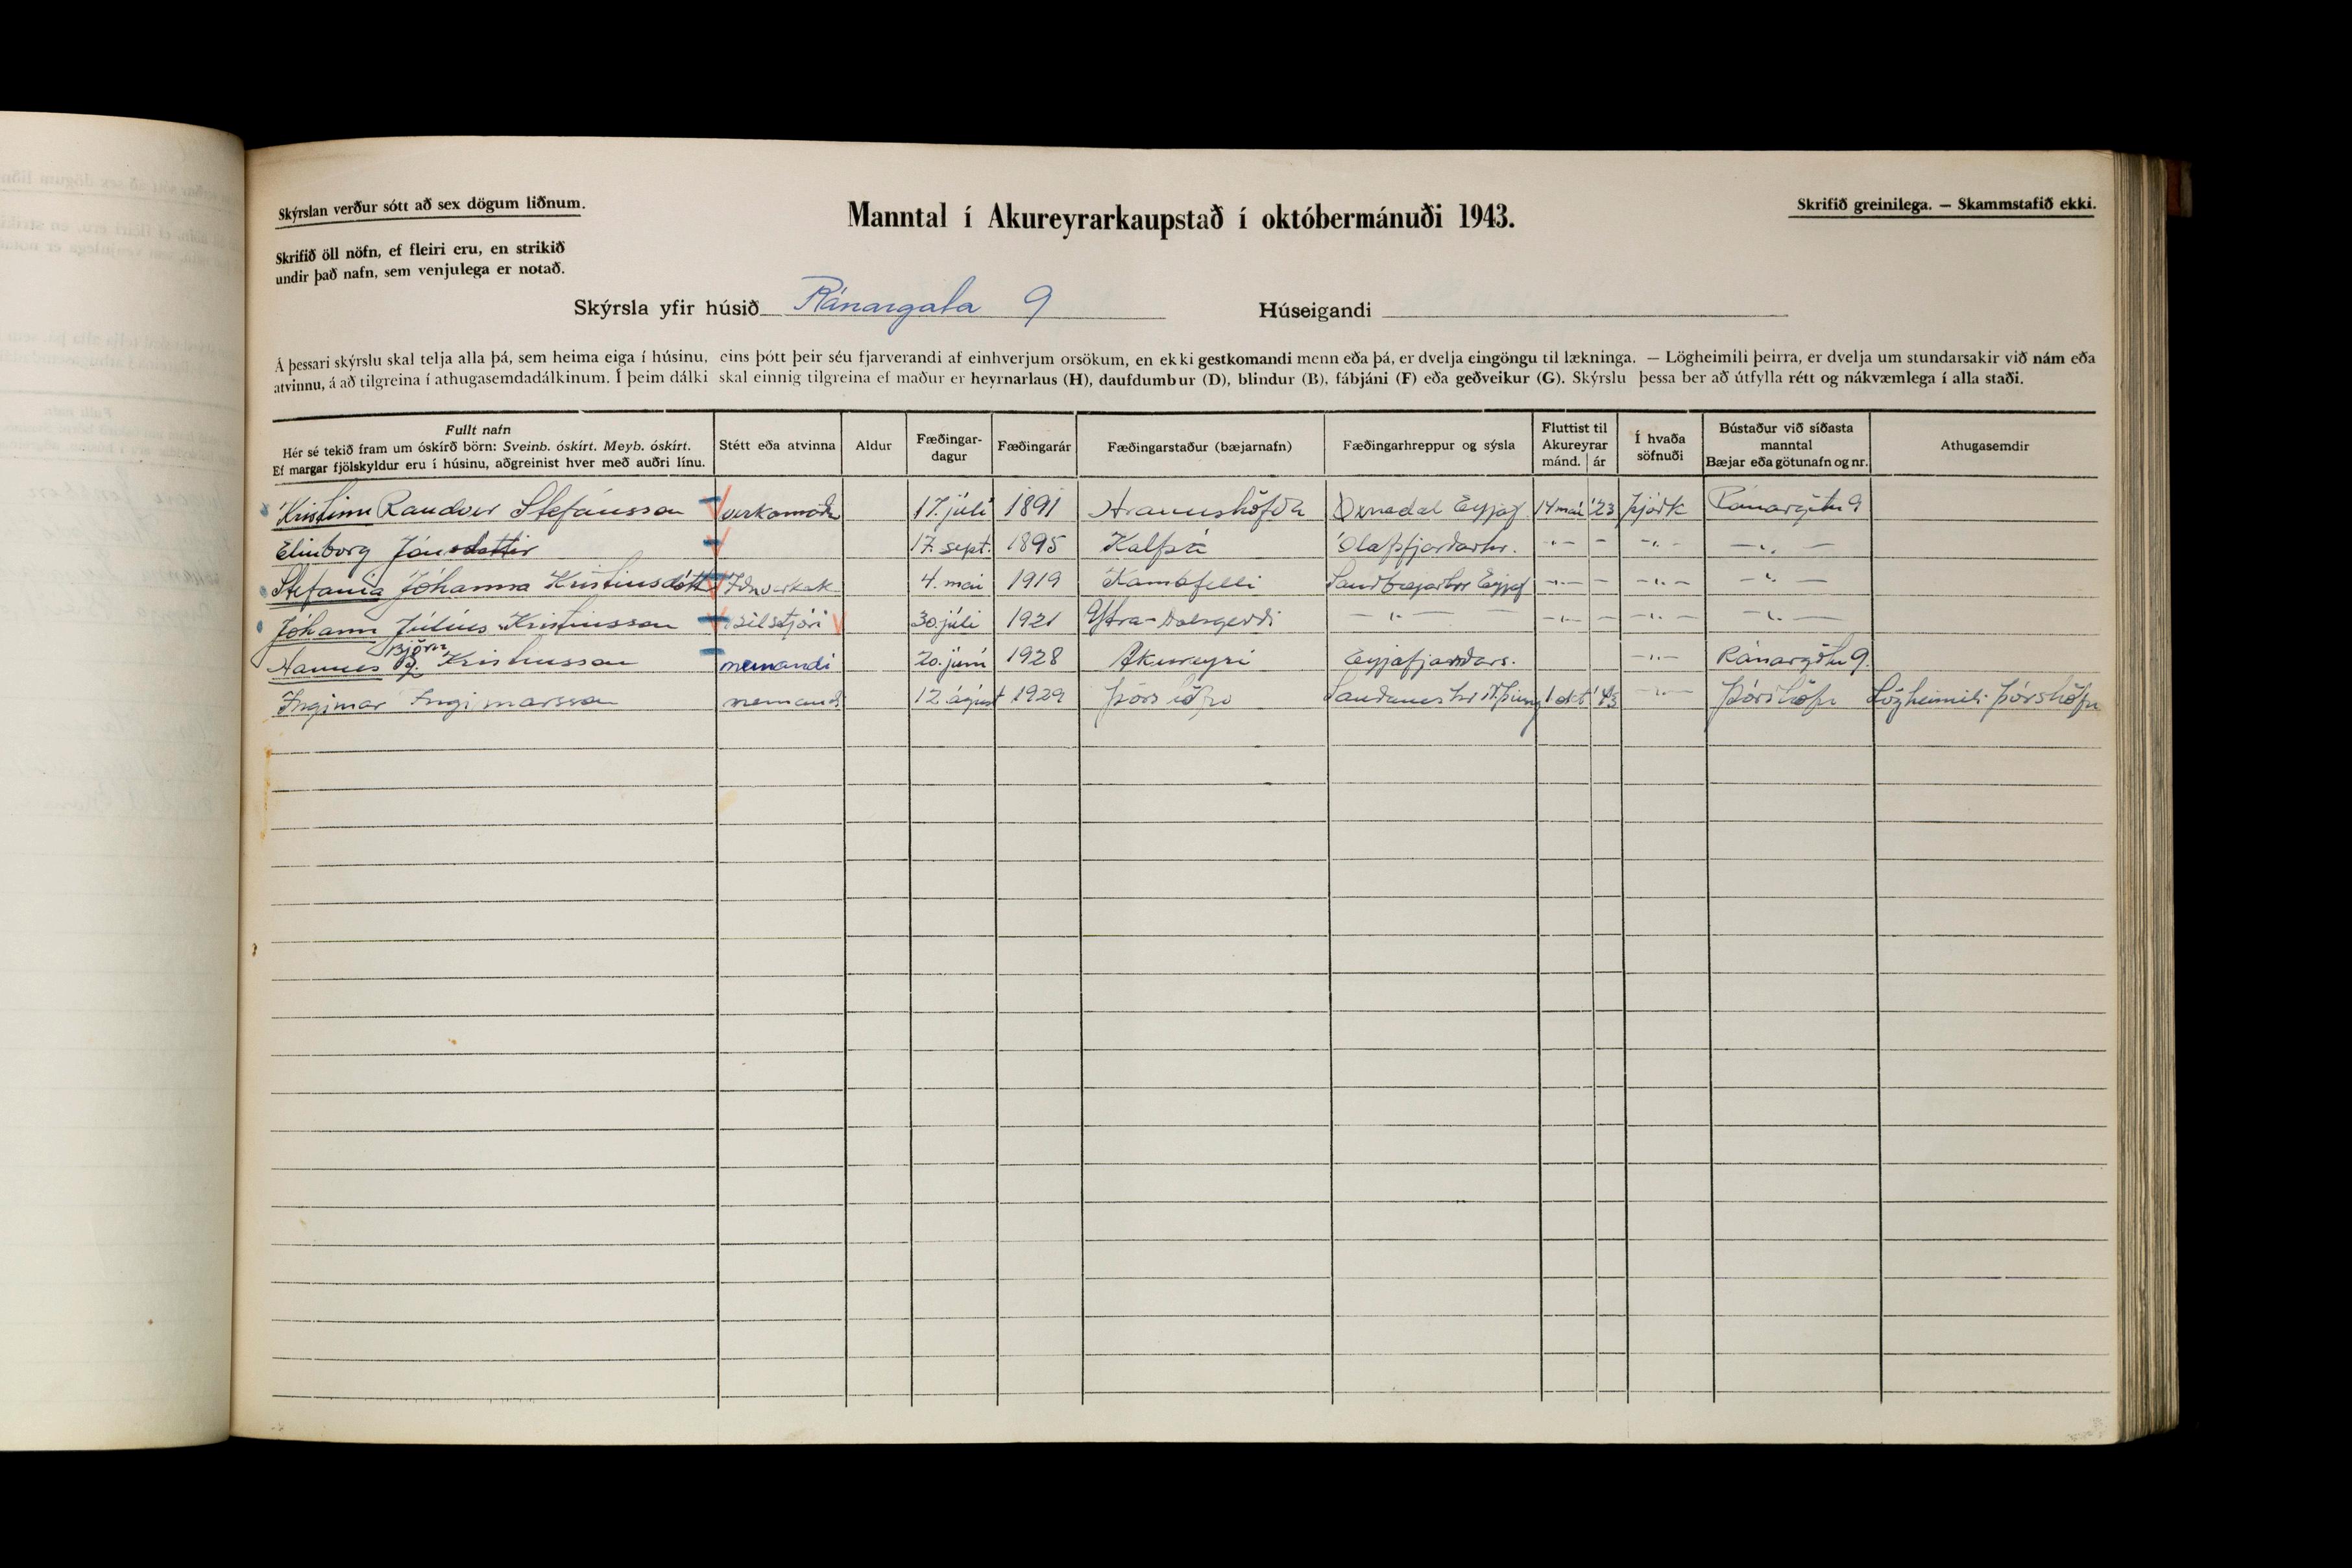 Skýrslan verður sótt að sex dögum liðnum.
Manntal í Akureyrarkaupstað í októbermánuði 1943.
Skrifið greinilega. — Skammstafið ekki.
Skrifið öll nöfn, ef fleiri eru, en strikið
undir það nafn, sem venjulega er notað.
Skýrsla yfir húsið Ránargata 9 Húseigandi
Á þessari skýrslu skal telja alla þá, sem heima eiga í húsinu, eins þótt þeir séu fjarverandi af einhverjum orsökum, en ekki gestkomandi menn eða þá, er dvelja eingöngu til lækninga. — Lögheimili þeirra, er dvelja um stundarsakir við nám eða
atvinnu, á að tilgreina í athugasemdadálkinum. Í þeim dálki skal einnig tilgreina ef maður er heyrnarlaus (H), daufdumbur (D), blindur (B), fábjáni (F) eða geðveikur (G). Skýrslu þessa ber að útfylla rétt og nákvæmlega í alla staði.
Fullt nafn
Hér sé tekið fram um óskírð börn: Sveinb. óskírt. Meyb. óskírt.
Ef margar fjölskyldur eru í húsinu, aðgreinist hver með auðri línu.
Stétt eða atvinna
Aldur
Fæðingar-
dagur
Fæðingarár
Fæðingarstaður (bæjarnafn)
Fæðingarhreppur og sýsla
Fluttist til
Akureyrar
mánd. ár
Í hvaða
söfnuði
Bústaður við síðasta
manntal
Bæjar eða götunafn og nr.
Athugasemdir
Kristinn Randver Stefánsson 17. júlí 1891 Hraunshöfða Öxnadal Eyjaf 14 maí '23 þjóðk Ránargötu 9
Elinborg Jónsdottir 17. sept. 1895 Kálfsá Ólafsfjarðarhr. -"- - -"- -"-
Stefania Jóhanna Kristinsdótt Iðnverkak 4. maí 1919 Kambfelli Saurbæjarhr Eyjaf -"- - -"- -"-
Jóhann Júlíus Kristinsson bílstjóri 30 júlí 1921 Ytra-Dalsgerði -"- - -"- - -"- -"-
Hannes Björn Kristinsson nemandi 20. júní 1928 Akureyri Eyjafjarðars. -"- Ránargötu 9.
Ingimar Ingimarsson nemandi 12 ágúst 1929 Þórshöfn Sauðaneshr N.þing 1 okt '43 -"- Þórshöfn Lögheimili Þórshöfn